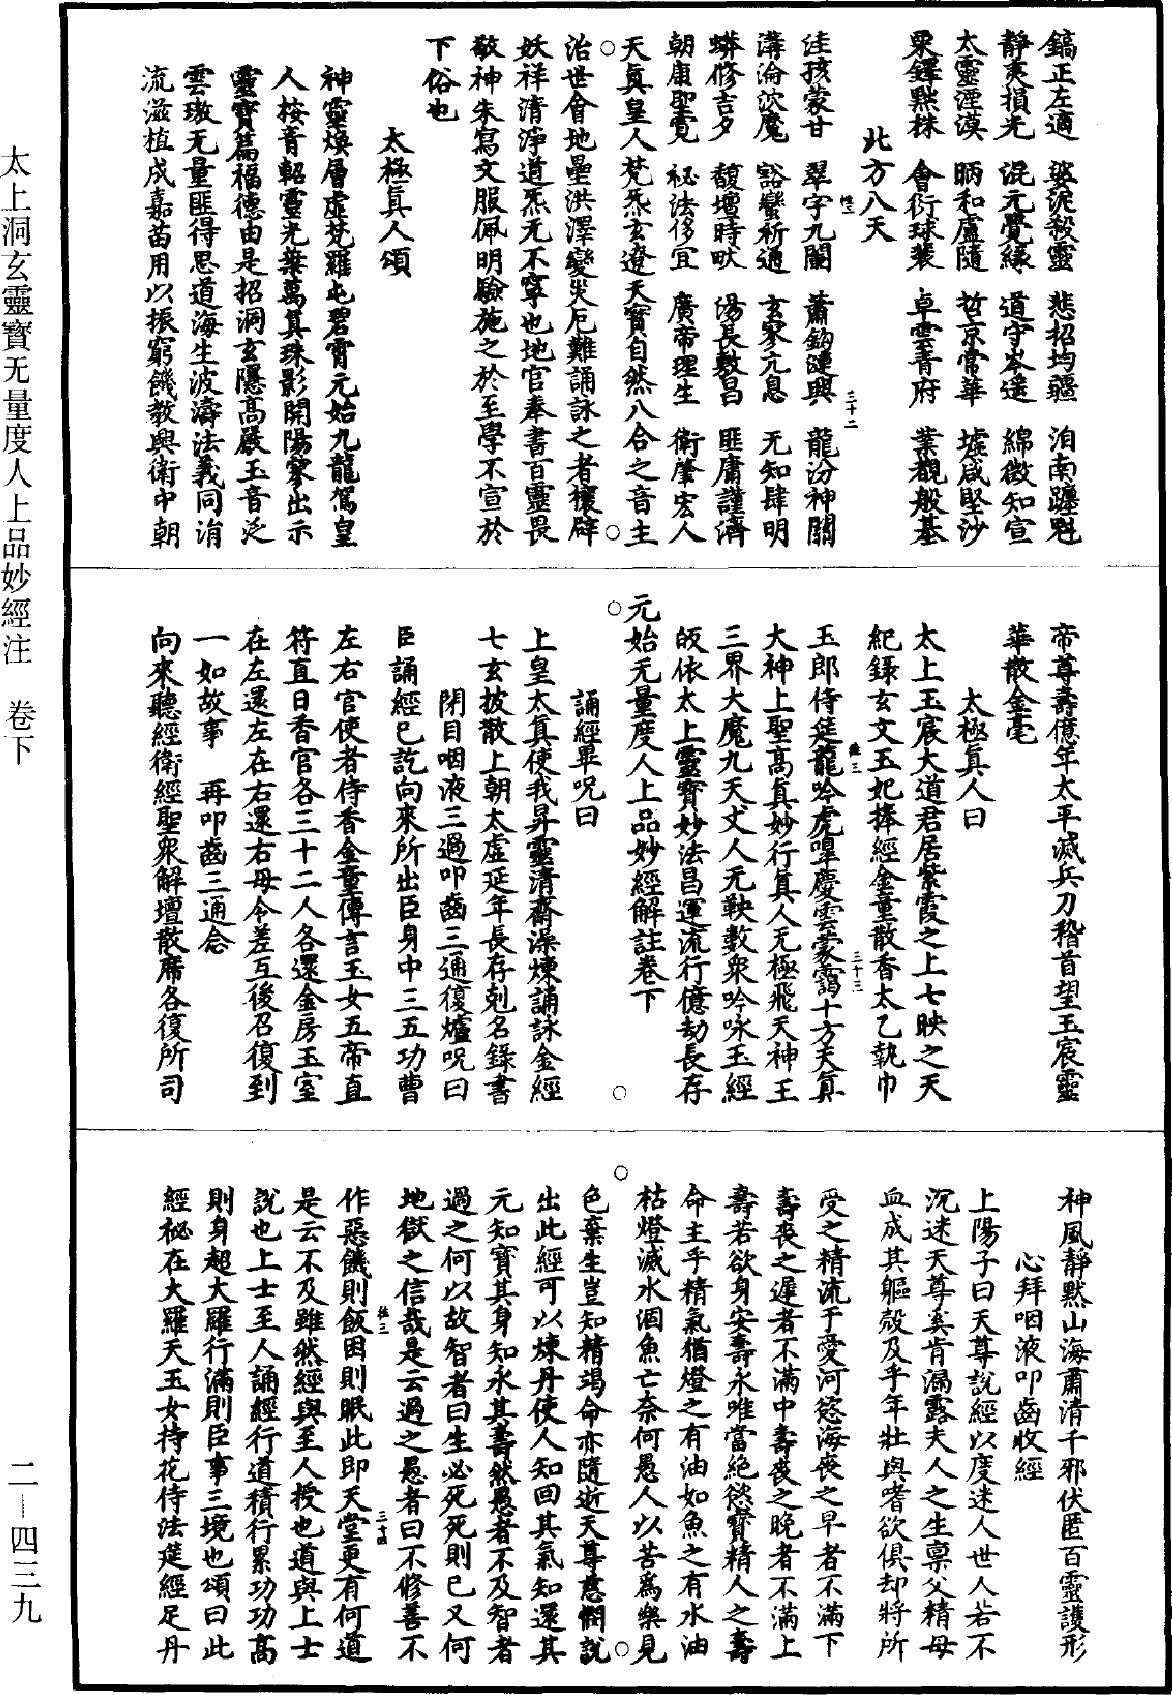 鎬正左通　婆泥殺靈　悲招均疆　洎南躔魁
靜夷損光　混元覺緣　道守岑遥　綿微知宣
太靈湮漠　昞和盧隨　哲京常華　墟咸堅沙
粟鐸黙株　會衍球裴　卓雲青府　業觀般基
北方八天
洼孩蒙甘　翠字九闡　蕭鈎漣興　龍汾神關
溝淪沈魔　豁蠻祈通　玄寥亢息　无知肆明
蟒修吉夕　馥壇時吠　湯長敷昌　匪庸謹濟
朝康聖覺　祕法侈宜　廣帝理生　衛肇宏人
天真皇人梵炁玄遼天寶自然八合之音主
治世會地壘洪澤變灾厄難誦詠之者禳辟
妖祥清淨道炁无不寧也地官奉書百靈畏
敬神朱寫文服佩明驗施之於至學不宣於
下俗也
太極真人頌
神靈煥層虛梵羅屯碧霄元始九龍駕皇
人按音韶靈光葉萬真珠影開陽寥出示
靈寶篇福德由是招洞玄隱髙嚴玉音泛
雲璈无量匪得思道海生波濤法義同涓
流滋植成嘉苗用以振窮饑教興衛中朝
帝尊壽億年太平滅兵刀稽首望玉宸靈
華散金毫
太極真人曰
太上玉宸大道君居紫霞之上七映之天
紀錄玄文玉妃捧經金童散香太乙執巾
玉郎侍筵龍吟虎嘷慶雲蒙靄十方天真
大神上聖髙真妙行真人无極飛天神王
三界大魔九天丈人无鞅數衆吟咏玉經
皈依太上靈寶妙法昌運流行億劫長存
元始无量度人上品妙經解註卷下
誦經畢呪曰
上皇太真使我昇靈清齋澡煉誦詠金經
七玄披散上朝太虛延年長存剋名錄書
閉目咽液三過叩齒三通復爐呪曰
臣誦經已訖向來所出臣身中三五功曹
左右官使者侍香金童傳言玉女五帝直
符直日香官各三十二人各還金房玉室
在左還左在右還右毋令差互後召復到
一如故事　再叩齒三通念
向來聽經衛經聖衆解壇散席各復所司
神風靜黙山海肅清千邪伏匿百靈護形
心拜咽液叩齒收經
上陽子曰天尊說經以度迷人世人若不
沉迷天尊奚肯漏露夫人之生禀父精母
血成其軀殼及乎年壯與嗜欲俱却將所
受之精流于愛河慾海喪之早者不滿下
壽喪之遲者不滿中壽喪之晚者不滿上
壽若欲身安壽永唯當絶慾寶精人之壽
命主乎精氣猶燈之有油如魚之有水油
枯燈滅水涸魚亡奈何愚人以苦爲樂見
色棄生豈知精竭命亦隨逝天尊慈憫說
出此經可以煉丹使人知回其氣知還其
元知寶其身知永其壽然愚者不及智者
過之何以故智者曰生必死死則已又何
地獄之信哉是云過之愚者曰不修善不
作惡饑則飯困則眠此即天堂更有何道
是云不及雖然經與至人授也道與上士
説也上士至人誦經行道積行累功功髙
則身超大羅行滿則臣事三境也頌曰此
經祕在大羅天玉女持花侍法筵經足丹
太上洞玄靈寶无量度人上品妙經注　卷下
二—四三九